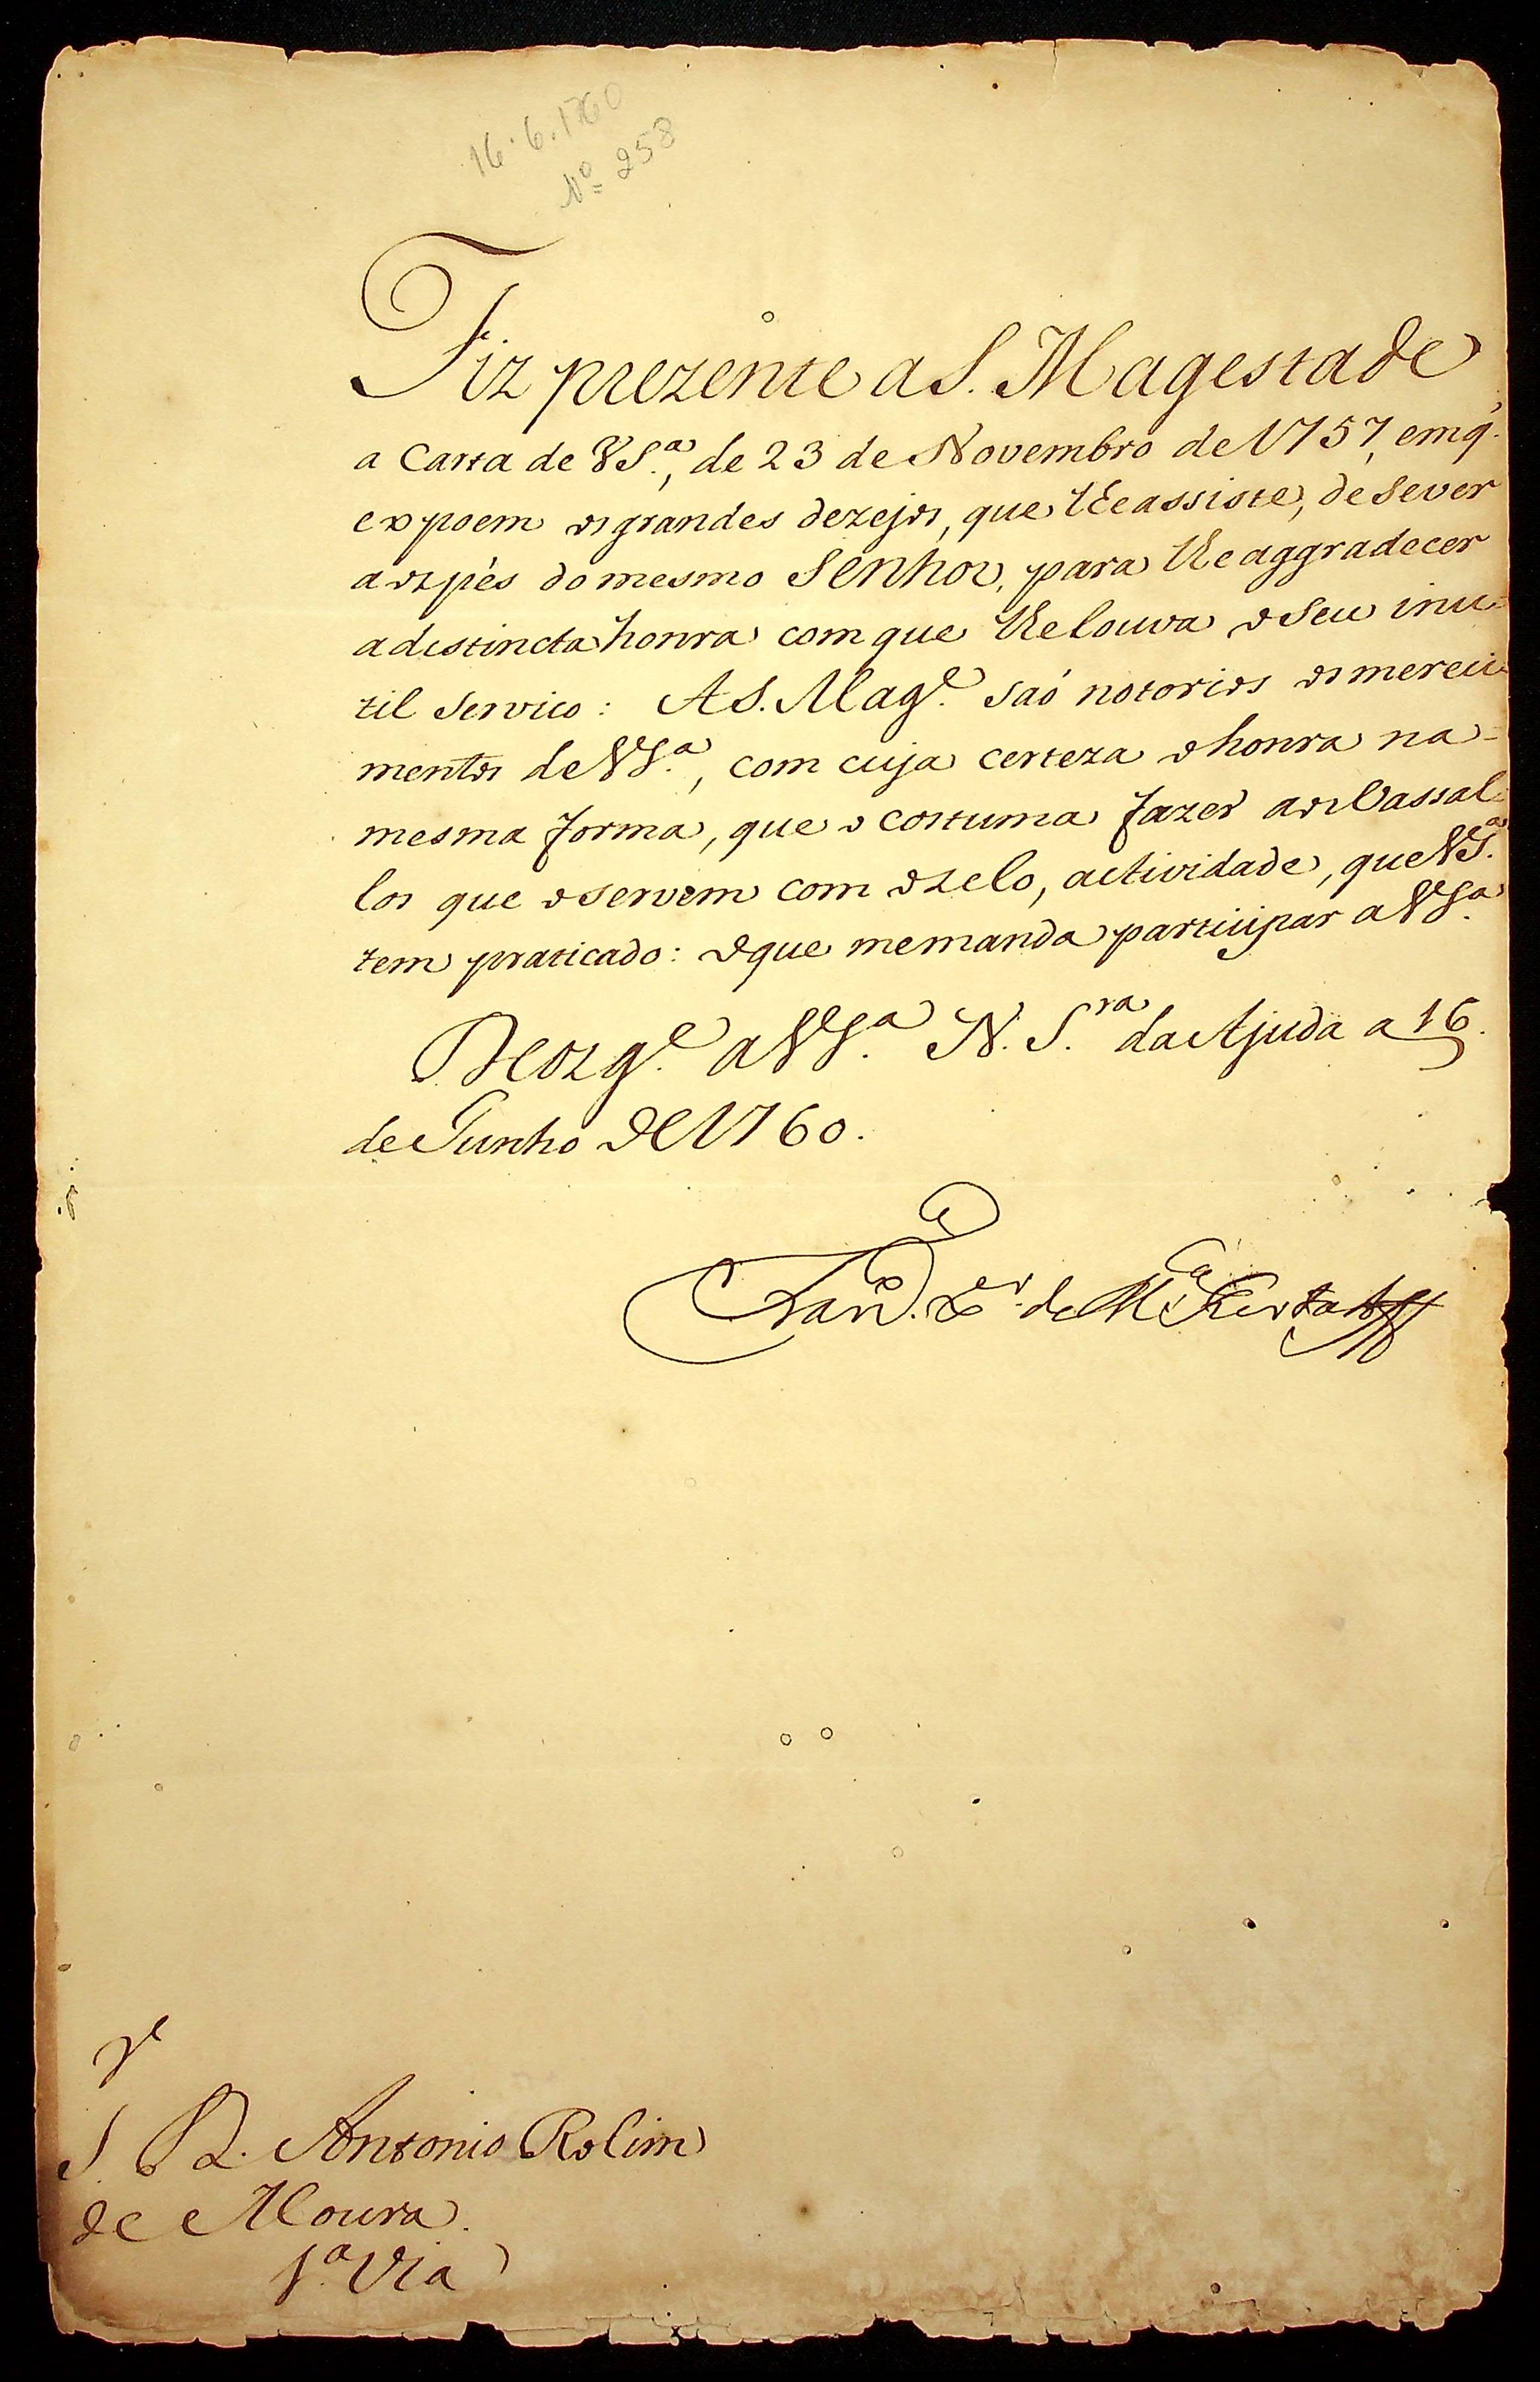 16.6.1760
Nº 258
Fiz prezente a S. Magestade
a Carta de V S.ª, de 23 de Novembro de 1757, em q.
expoem os grandes dezejos, que lhe assiste, de se ver
aos pés do mesmo Senhor, para lhe aggradecer
a distincta honra com que lhe louva o seu inu-
til servico: A S. Mag.e saó notorios os mereci-
mentos de V S.ª, com cuja certeza o honra na
mesma forma, que o costuma fazer aos Vassal-
los que o servem com o zelo, actividade, que V S.ª
tem praticado: O que me manda participar a V S.ª
Deos g.e a V S.ª N. S.ra da Ajuda a 16
de Junho de 1760.
Fran.co X.er de M.ça Furtado
S.r D. Antonio Rolim
de Moura.
1.ª Via